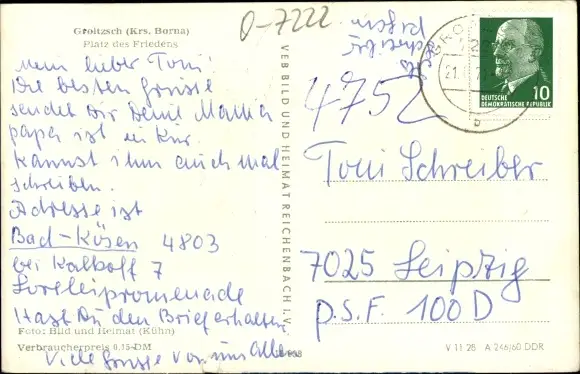 O-7222
Groitzsch (Krs. Borna)
Platz des Friedens
Mein lieber Toni!
Die besten Grüsse
sendet Dir Deine Mama
papa ist in Kur.
kannst ihm auch mal
schreiben.
Adresse ist
Bad-Kösen 4803
bei Kalkoff 7
Loreleipromenade
Hast Du den Brief erhalten
Viele Grüsse von uns Allen
Foto: Bild und Heimat (Kühn)
Verbraucherpreis 0,15 DM
VEB BILD UND HEIMAT REICHENBACH I. V.
DEUTSCHE
DEMOKRATISCHE REPUBLIK
10
4752
Toni Schreiber
7025 Leipzig
P.S.F. 100D
V 11 28 A 246/60 DDR